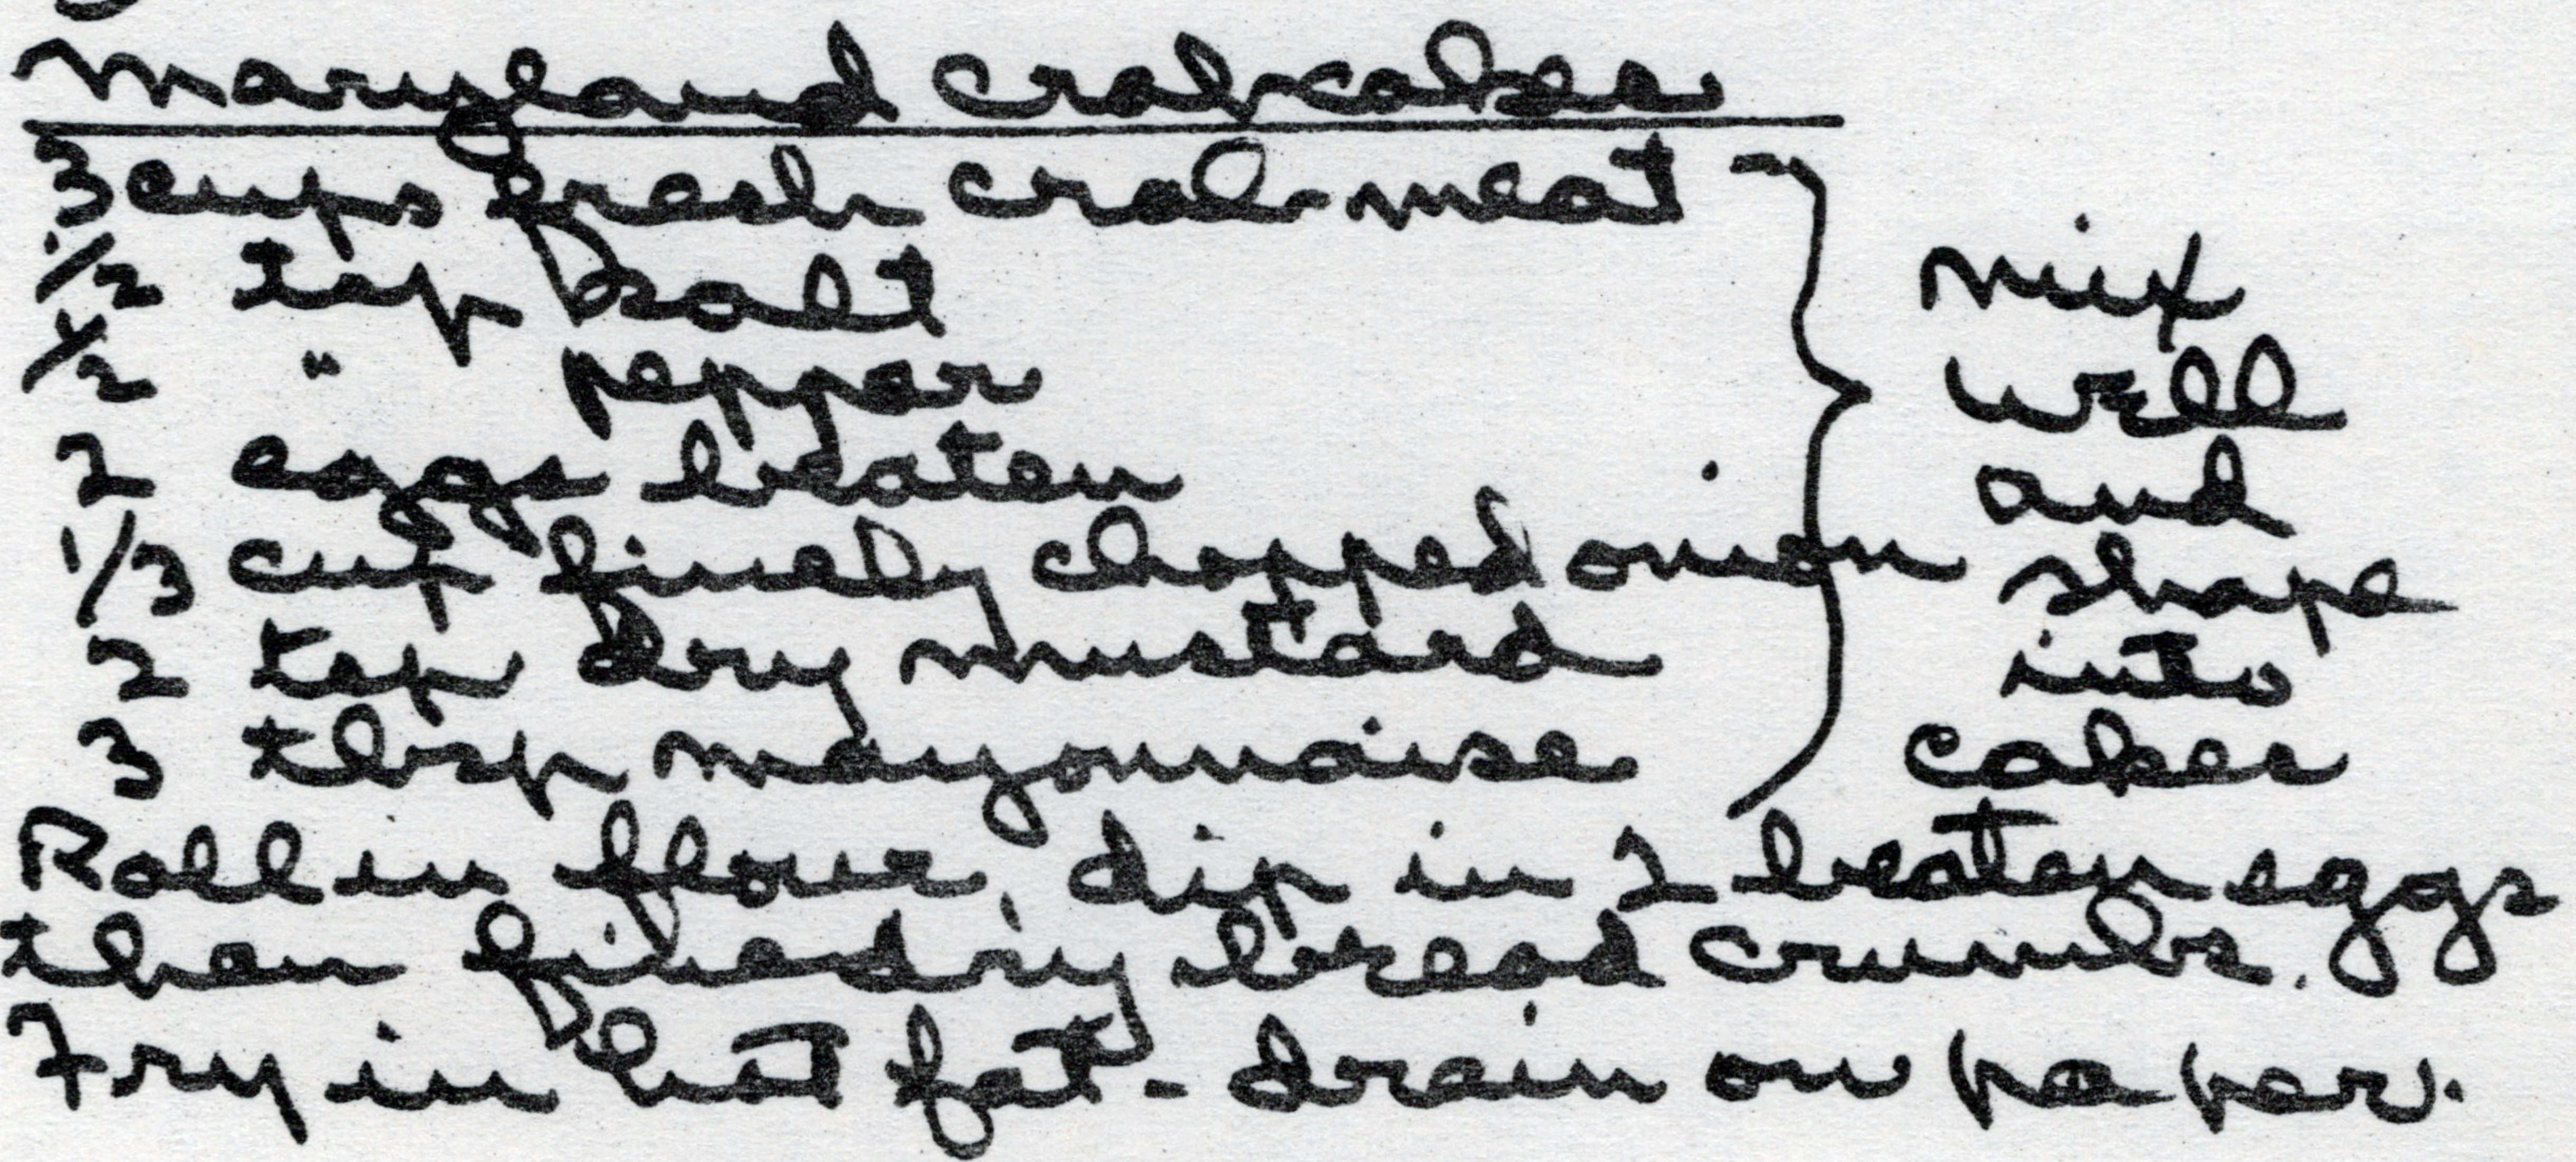 Maryland Crabcakes
3 cups fresh crab-meat
1/2 tsp salt
1/2 " pepper
2 eggs beaten
1/3 cup finely chopped onion
2 tsp dry mustard
3 tbsp mayonnaise
mix
well
and
shape
into
cakes
Roll in flour, dip in 2 beaten eggs
then fine dry bread crumbs.
Fry in hot fat - drain on paper.